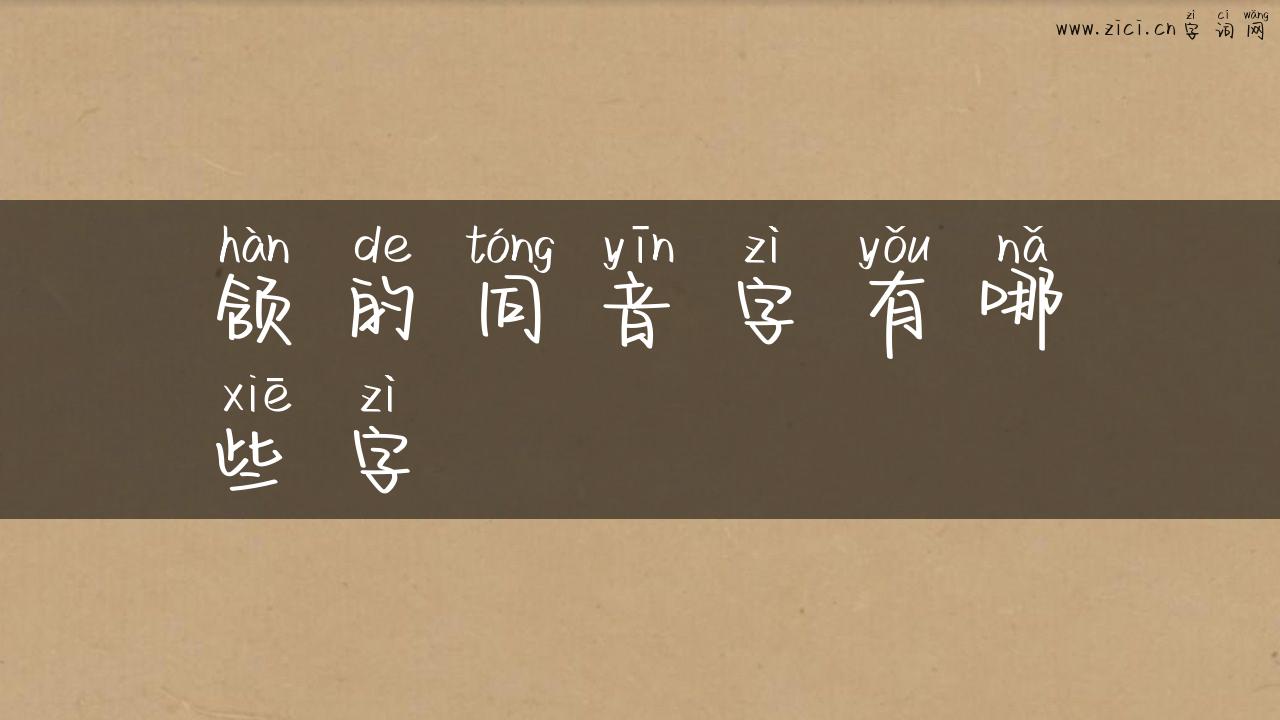 zì cí wǎng
www.zici.cn 字 词 网
hàn de tóng yīn zì yǒu nǎ
颔 的 同 音 字 有 哪
xiē zì
些 字